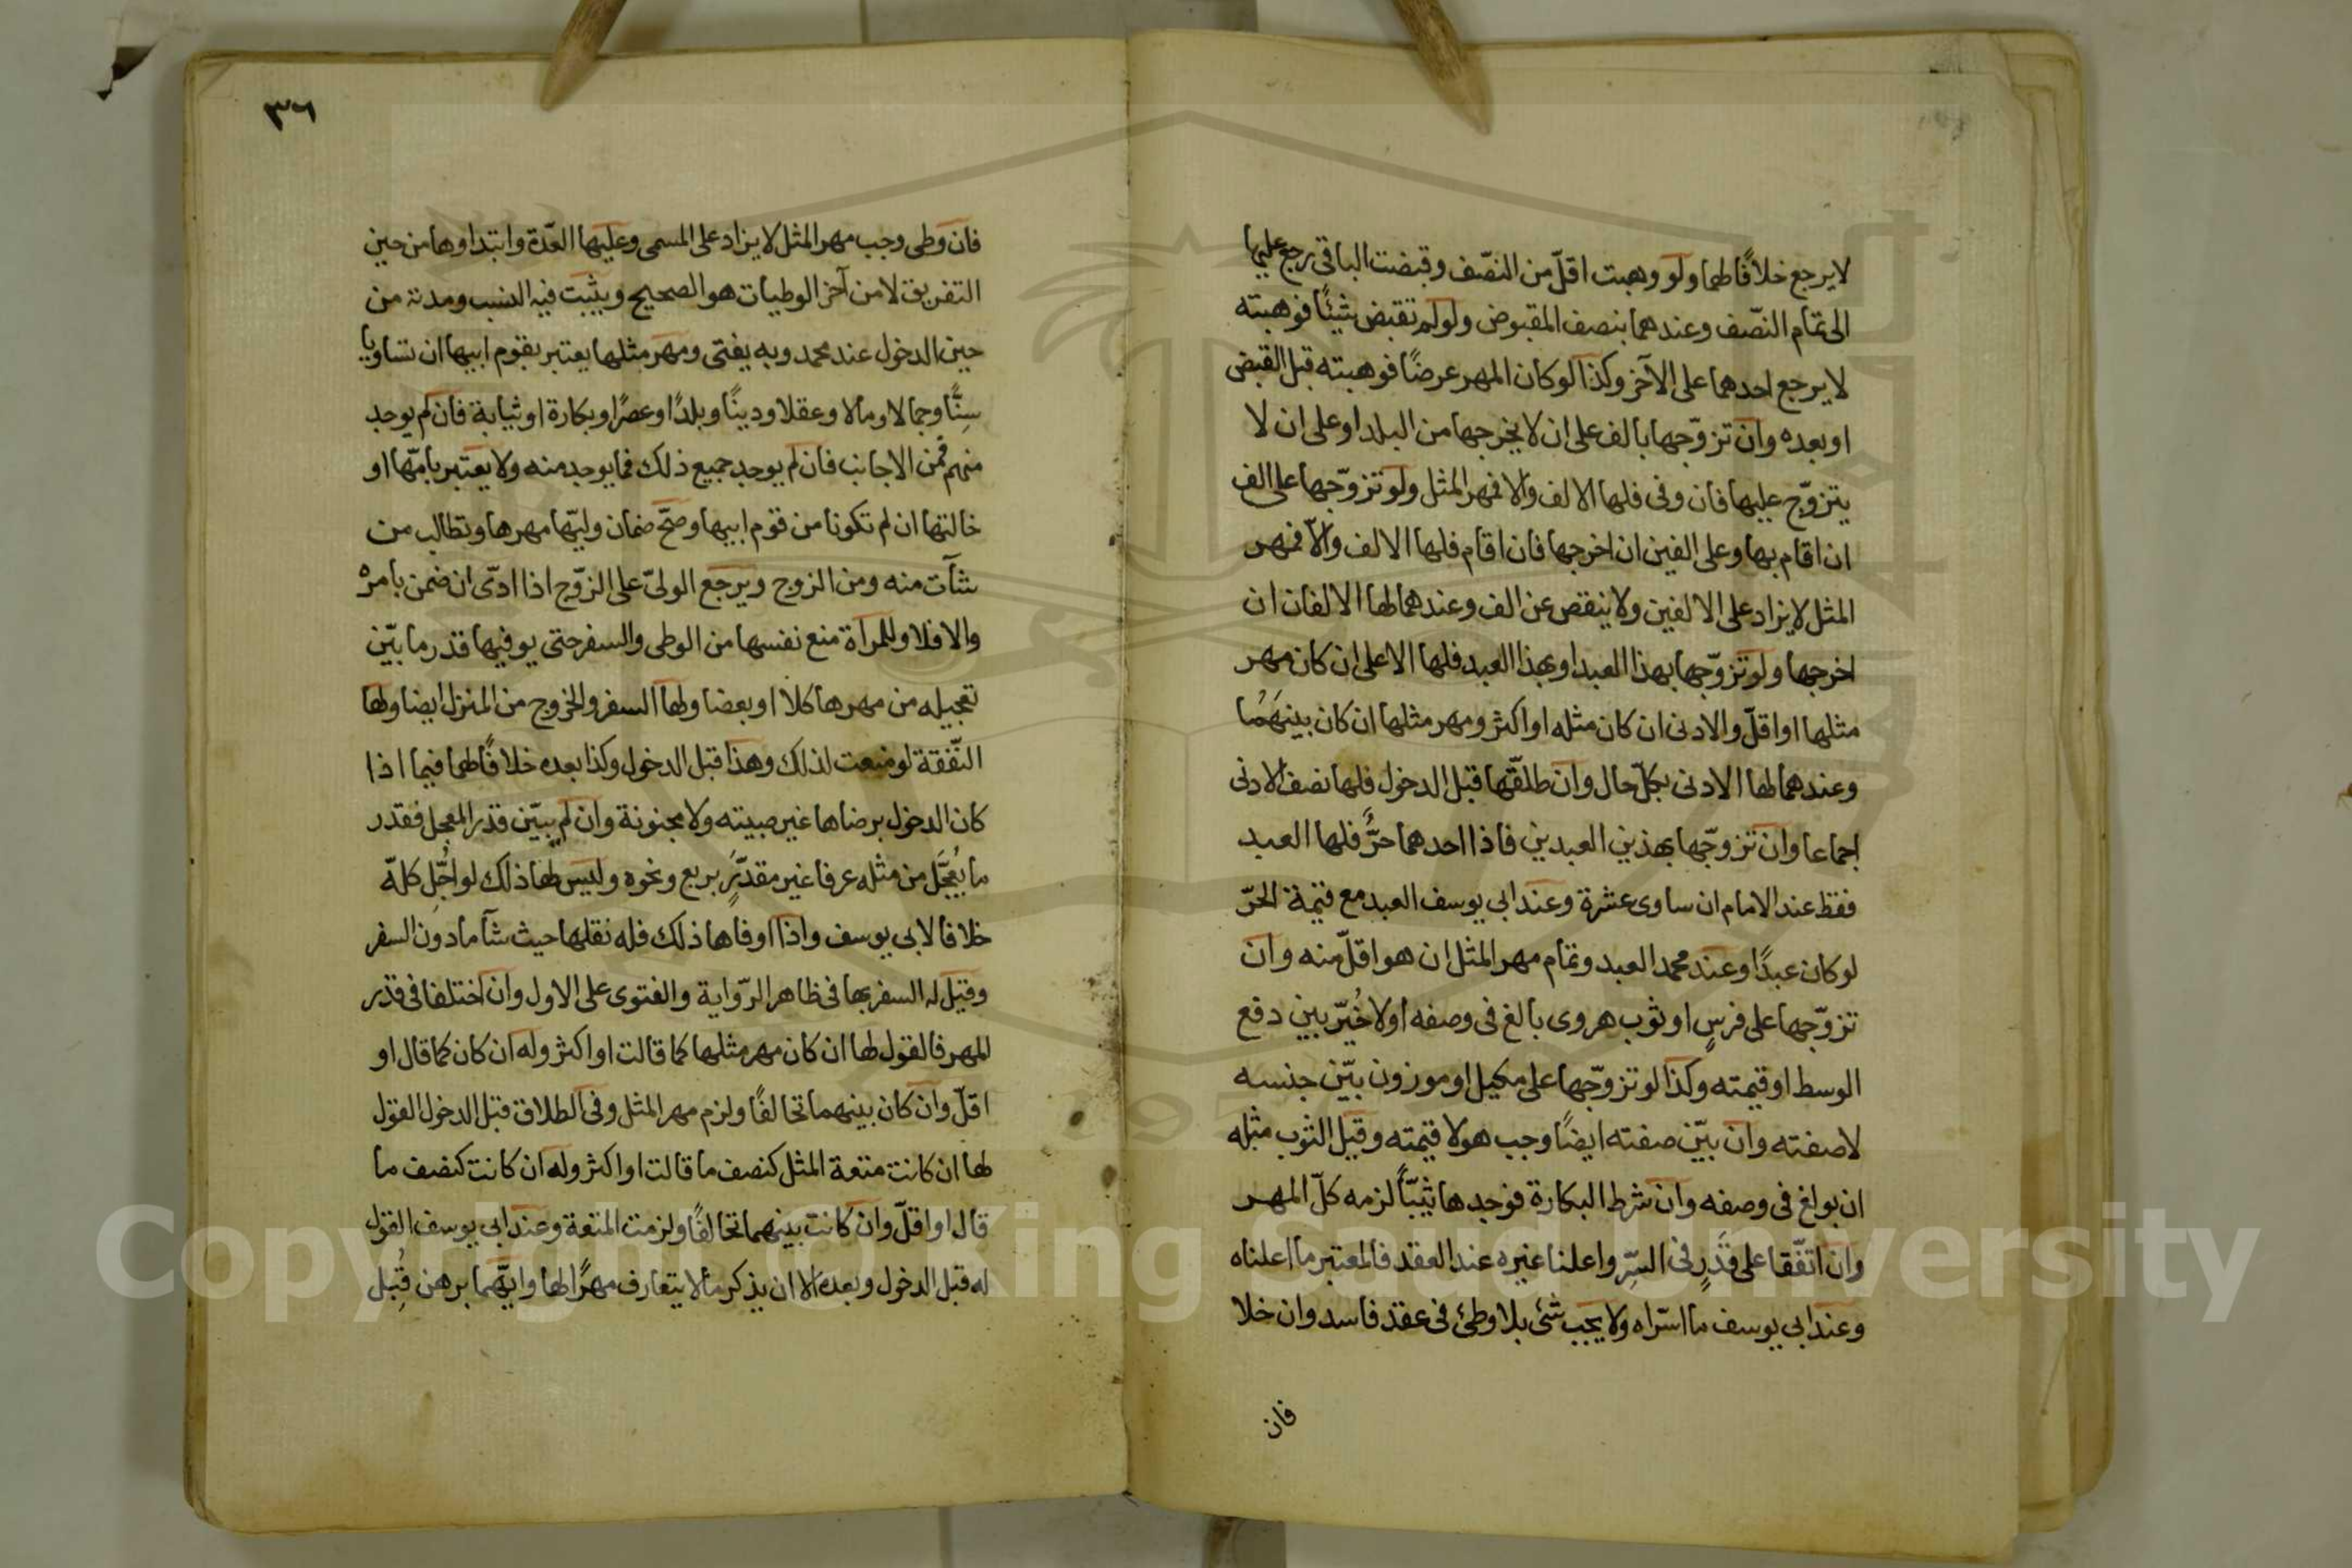 لا يرجع خلافًا لهما ولو وهبت اقلّ من النصّف وقبضت الباقي رجع عليها
الى تمام النصّف وعندهما بنصف المقبوض ولو لم تقبض شيئًا فوهبته
لا يرجع احدهما على الآخر وكذا لو كان المهر عرضًا فوهبته قبل القبض
او بعده وان تزوّجها بالف على ان لا يخرجها من البلد او على ان لا
يتزوّج عليها فان وفى فلها الالف والا فمهر المثل ولو تزوّجها على الف
ان اقام بها وعلى الفين ان اخرجها فان اقام فلها الالف والّا فمهر
المثل لا يزاد على الالفين ولا ينقص عن الف وعندهما لها الالفان ان
اخرجها ولو تزوّجها بهذا العبد او بهذا العبد فلها الاعلى ان كان مهر
مثلها او اقلّ والادنى ان كان مثله او اكثر ومهر مثلها ان كان بينهَمُا
وعندهما لها الادنى بكلّ حال وان طلقّها قبل الدخول فلها نصف الادنى
اجماعا وان تزوّجها بهذين العبدين فاذا احدهما حرٌّ فلها العبد
فقط عند الامام ان ساوى عشرة وعند ابي يوسف العبد مع قيمة الحرّ
لو كان عبدًا وعند محمد العبد وتمام مهر المثل ان هو اقلّ منه وان
تزوّجها على فرسٍ او ثوب هروى بالغ في وصفه او لا خُيّر بين دفع
الوسط او قيمته وكذا لو تزوّجها على مكيل او موزون بيّن جنسه
لا صفته وان بيّن صفته ايضًا وجب هو لا قيمته وقيل الثوب مثله
ان بولغ في وصفه وان شرط البكارة فوجدها ثيبّاً لزمه كلّ المهر
وان اتّفقا على قَدَرٍ في السِّر واعلنا غيره عند العقد فالمعتبر ما اعلناه
وعند ابي يوسف ما اسّراه ولا يجب شئ بلا وطئ في عقد فاسد وان خلا
فان
٣٦
فان وطى وجب مهر المثل لا يزاد على المسمى وعليها العدّة وابتداوها من حين
التفريق لا من آخر الوطيات هو الصحيح ويثبت فيه النسب ومدته من
حين الدخول عند محمد وبه يفتى ومهر مثلها يعتبر بقوم ابيها ان تساويا
سِنًّا وجمالا ومالا وعقلا ودينًا وبلدًا وعصرًا وبكارة او ثيابة فان لم يوجد
منهم فمن الاجانب فان لم يوجد جميع ذلك فما يوجد منه ولا يعتبر بامّها او
خالتها ان لم تكونا من قوم ابيها وصحّ ضمان وليّها مهرها وتطالب من
شآت منه ومن الزوج ويرجع الولىّ على الزوّج اذا ادّى ان ضمن بامره
والا فلا وللمراة منع نفسها من الوطى والسفر حتى يوفيها قدر ما بيّن
تعجيله من مهرها كلا او بعضا ولها السفر والخروج من المنزل ايضا ولها
النّفقة لو منعت لذلك وهذا قبل الدخول وكذا بعده خلافًا لهما فيما اذا
كان الدخول برضاها غير صبيته ولا مجنونة وان لم يبيّن قدر المعجل فقدر
ما يُعجَّل من مثله عرفا غير مقدّرٍ بربع ونحوه وليس لها ذلك لو اجُّلِ كلهّ
خلافا لابي يوسف واذا اوفاها ذلك فله نقلها حيث شآ ما دون السفر
وقيل له السفر بها في ظاهر الرّواية والفتوى على الاول وان اختلفا في قدر
المهر فالقول لها ان كان مهر مثلها كما قالت او اكثر وله ان كان كما قال او
اقلّ وان كان بينهما تحالفًا ولزم مهر المثل وفي الطلاق قبل الدخول القول
لها ان كانت متعة المثل كنصف ما قالت او اكثر وله ان كانت كنصف ما
قال او اقلّ وان كانت بينهما تحالفًا ولزمت المتعة وعند ابي يوسف القول
له قبل الدخول وبعده الا ان يذكر ما لا يتعارف مهرًا لها وايّهما برهن قُبِل
Copyright © King Saud University